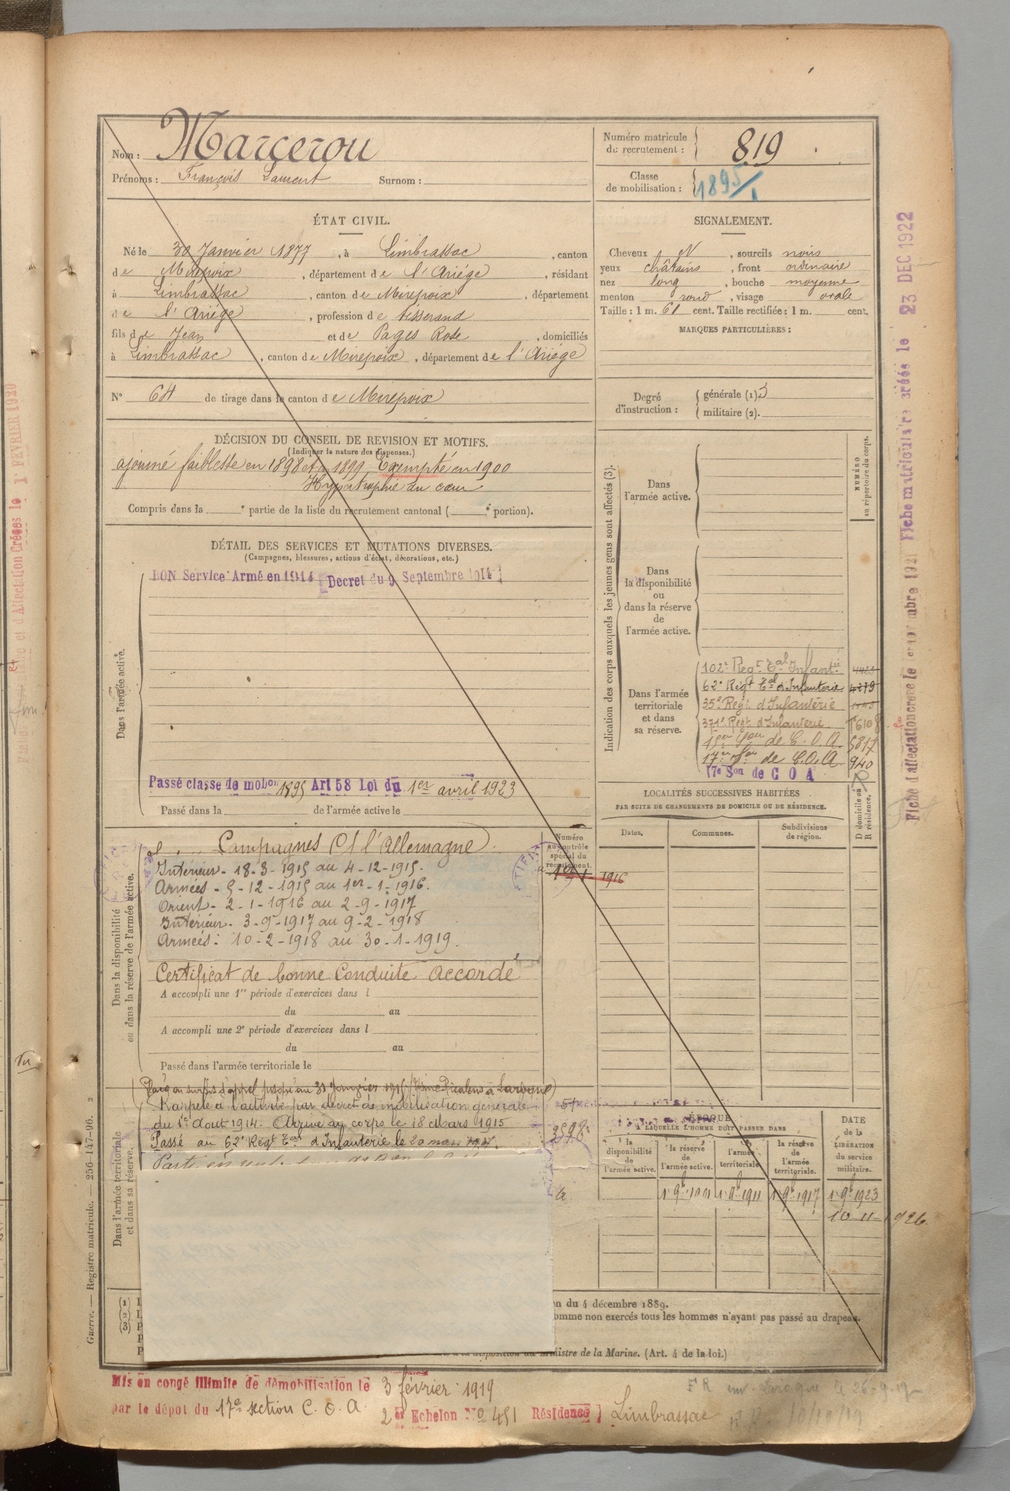 Nom : Marcerou
Prénoms : François Laurent Surnom :
Numéro matricule du recrutement : 819
Classe de mobilisation : 1895/1
ÉTAT CIVIL.
Né le 30 Janvier 1877, à Limbrassac, canton
de Mirepoix, département de l'Ariége, résidant
à Limbrassac, canton de Mirepoix, département
de l'Ariége, profession de tisserand
fils de Jean et de Pages Rose, domiciliés
à Limbrassac, canton de Mirepoix, département de l'Ariége
N° 64 de tirage dans le canton de Mirepoix
SIGNALEMENT.
Cheveux N, sourcils noirs
yeux châtains, front ordinaire
nez long, bouche moyenne
menton rond, visage ovale
Taille : 1 m. 61 cent. Taille rectifiée : 1 m. cent.
MARQUES PARTICULIÈRES :
Degré d'instruction : générale (1) 3
militaire (2).
DÉCISION DU CONSEIL DE REVISION ET MOTIFS.
(Indiquer la nature des dispenses.)
ajourné faiblesse en 1898 et 1899. Exempté en 1900
Hypertrophie du cœur
Compris dans la e partie de la liste du recrutement cantonal ( e portion).
DÉTAIL DES SERVICES ET MUTATIONS DIVERSES.
(Campagnes, blessures, actions d'éclat, décorations, etc.)
BON Service Armé en 1914 [Decret du 9 Septembre 1914]
Dans l'armée active.
Passé classe de mobon 1895 Art 58 Loi du 1er avril 1923
Passé dans la de l'armée active le
Indication des corps auxquels les jeunes gens sont affectés (3).
NUMÉRO au répertoire du corps.
Dans l'armée active.
Dans la disponibilité ou dans la réserve de l'armée active.
Dans l'armée territoriale et dans sa réserve.
102e Regt Eal Infantie
62e Régt Eal d'Infanterie 4279
35e Regt d'Infanterie
371e Regt d'Infanterie
15eme Son de C.O.A. 5817
17eme Son de C.O.A. 940
17e Son de C O A
LOCALITÉS SUCCESSIVES HABITÉES
PAR SUITE DE CHANGEMENTS DE DOMICILE OU DE RÉSIDENCE.
Dates. Communes. Subdivisions de région. D domicile ou R résidence.
Dans la disponibilité ou dans la réserve de l'armée active.
Campagnes Ct l'Allemagne
Intérieur - 18-3-1915 au 4-12-1915.
Armées - 5-12-1915 au 1er-1-1916.
Orient - 2-1-1916 au 2-9-1917
Intérieur - 3-9-1917 au 9-2-1918
Armées : 10-2-1918 au 30-1-1919.
Numéro au contrôle spécial du recrutement.
1916
Certificat de bonne Conduite accordé
A accompli une 1re période d'exercices dans l
du au
A accompli une 2e période d'exercices dans l
du au
Passé dans l'armée territoriale le
Dans l'armée territoriale et dans sa réserve.
Rappelé à l'activité par décret de mobilisation générale
du 1er Aout 1914. Arrivé au corps le 18 Mars 1915
Passé au 62e Régt Eal d'Infanterie le 20 mars 1915.
ÉPOQUE
À LAQUELLE L'HOMME DOIT PASSER DANS
la disponibilité de l'armée active. la réserve de l'armée active. l'armée territoriale. la réserve de l'armée territoriale.
DATE de la LIBÉRATION du service militaire.
1 9bre 1901 1 9bre 1911 1 9bre 1917 1 9bre 1923
10-11-1926
on du 4 décembre 1889.
omme non exercés tous les hommes n'ayant pas passé au drapeau.
Ministre de la Marine. (Art. 4 de la loi.)
Mis en congé illimité de démobilisation le 3 février 1919
par le dépot du 17e section C.O.A. 2e Echelon No 451 Résidence Limbrassac
Guerre. — Registre matricule. — 256-147-96.
Fiche matriculaire créée le 23 DEC 1922